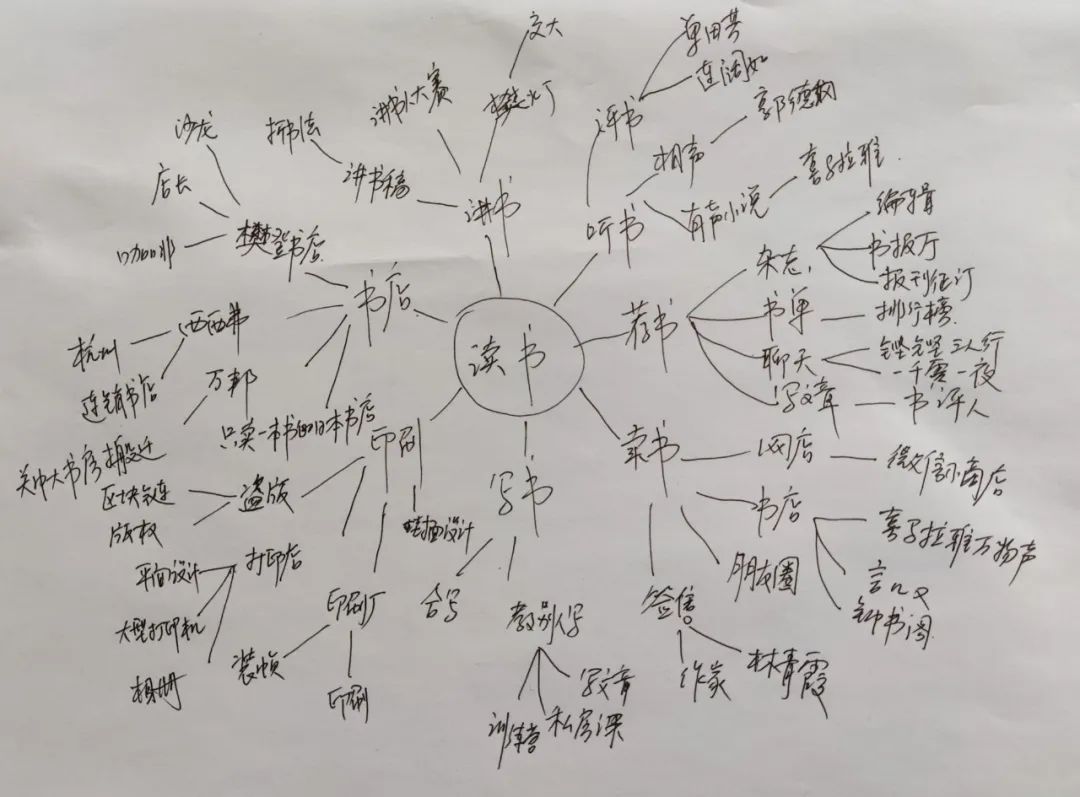 读书
讲书
樊灯
交大
讲书大赛
讲书稿
拆书法
听书
评书
单田芳
连阔如
相声
郭德纲
有声小说
喜马拉雅
荐书
杂志
编辑
书报厅
报刊征订
书单
排行榜
聊天
铿铿三人行
一千零一夜
写文章
书评人
卖书
网店
微信小商店
书店
喜马拉雅万物声
言几又
钟书阁
朋友圈
签售
作家
林青霞
写书
合写
教别人写
写文章
私房课
训练营
印刷
封面设计
印刷厂
装帧
印刷
打印店
平面设计
大型打印机
相册
盗版
区块链
版权
书店
樊登书店
沙龙
店长
咖啡
西西弗
杭州
连锁书店
万邦
关中大书房搬迁
只卖一本书的日本书店